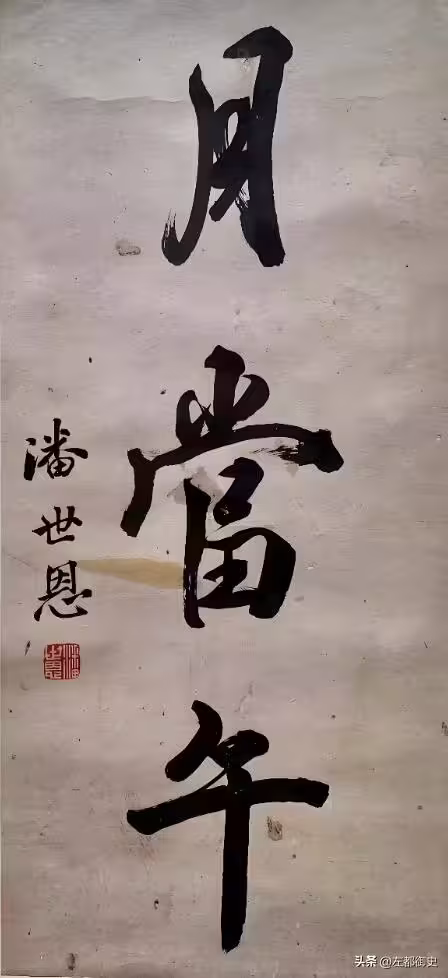 月當午
潘世恩
潘世恩
头条 @左都御史